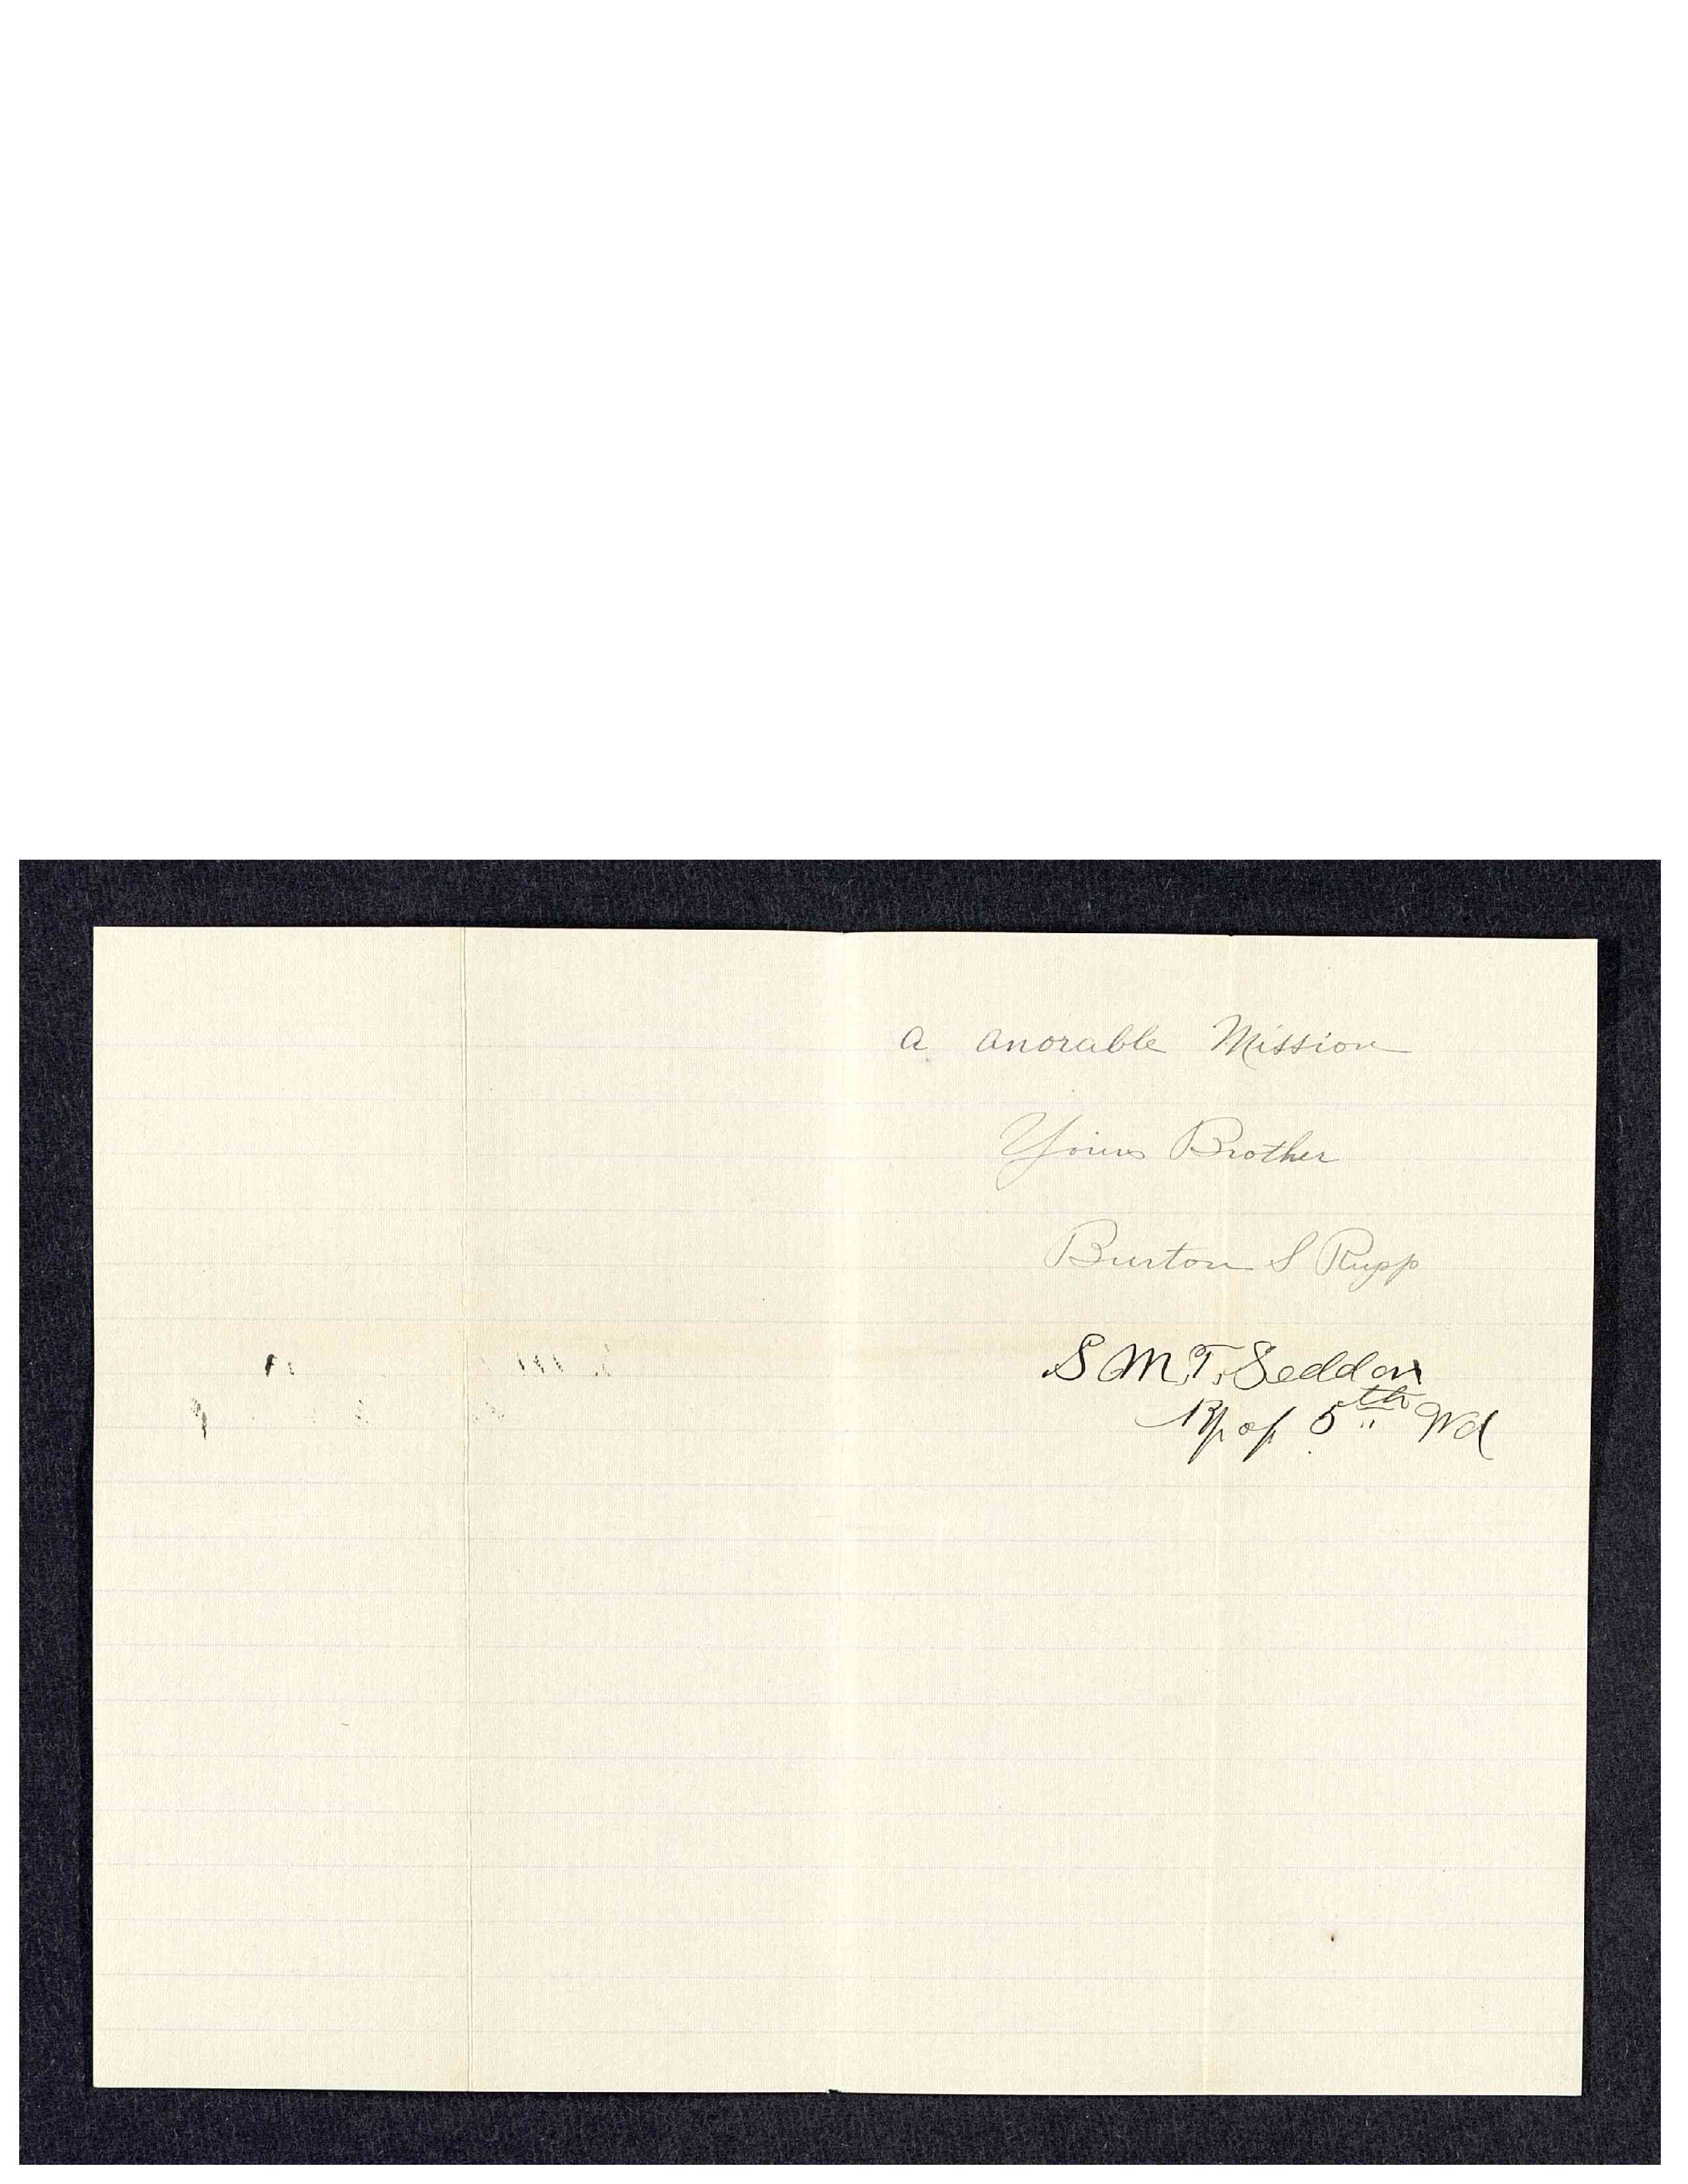 a anorable Mission
Yours Brother
Burton S Rupp
S M. T. Seddon
Bp of 5th Wd